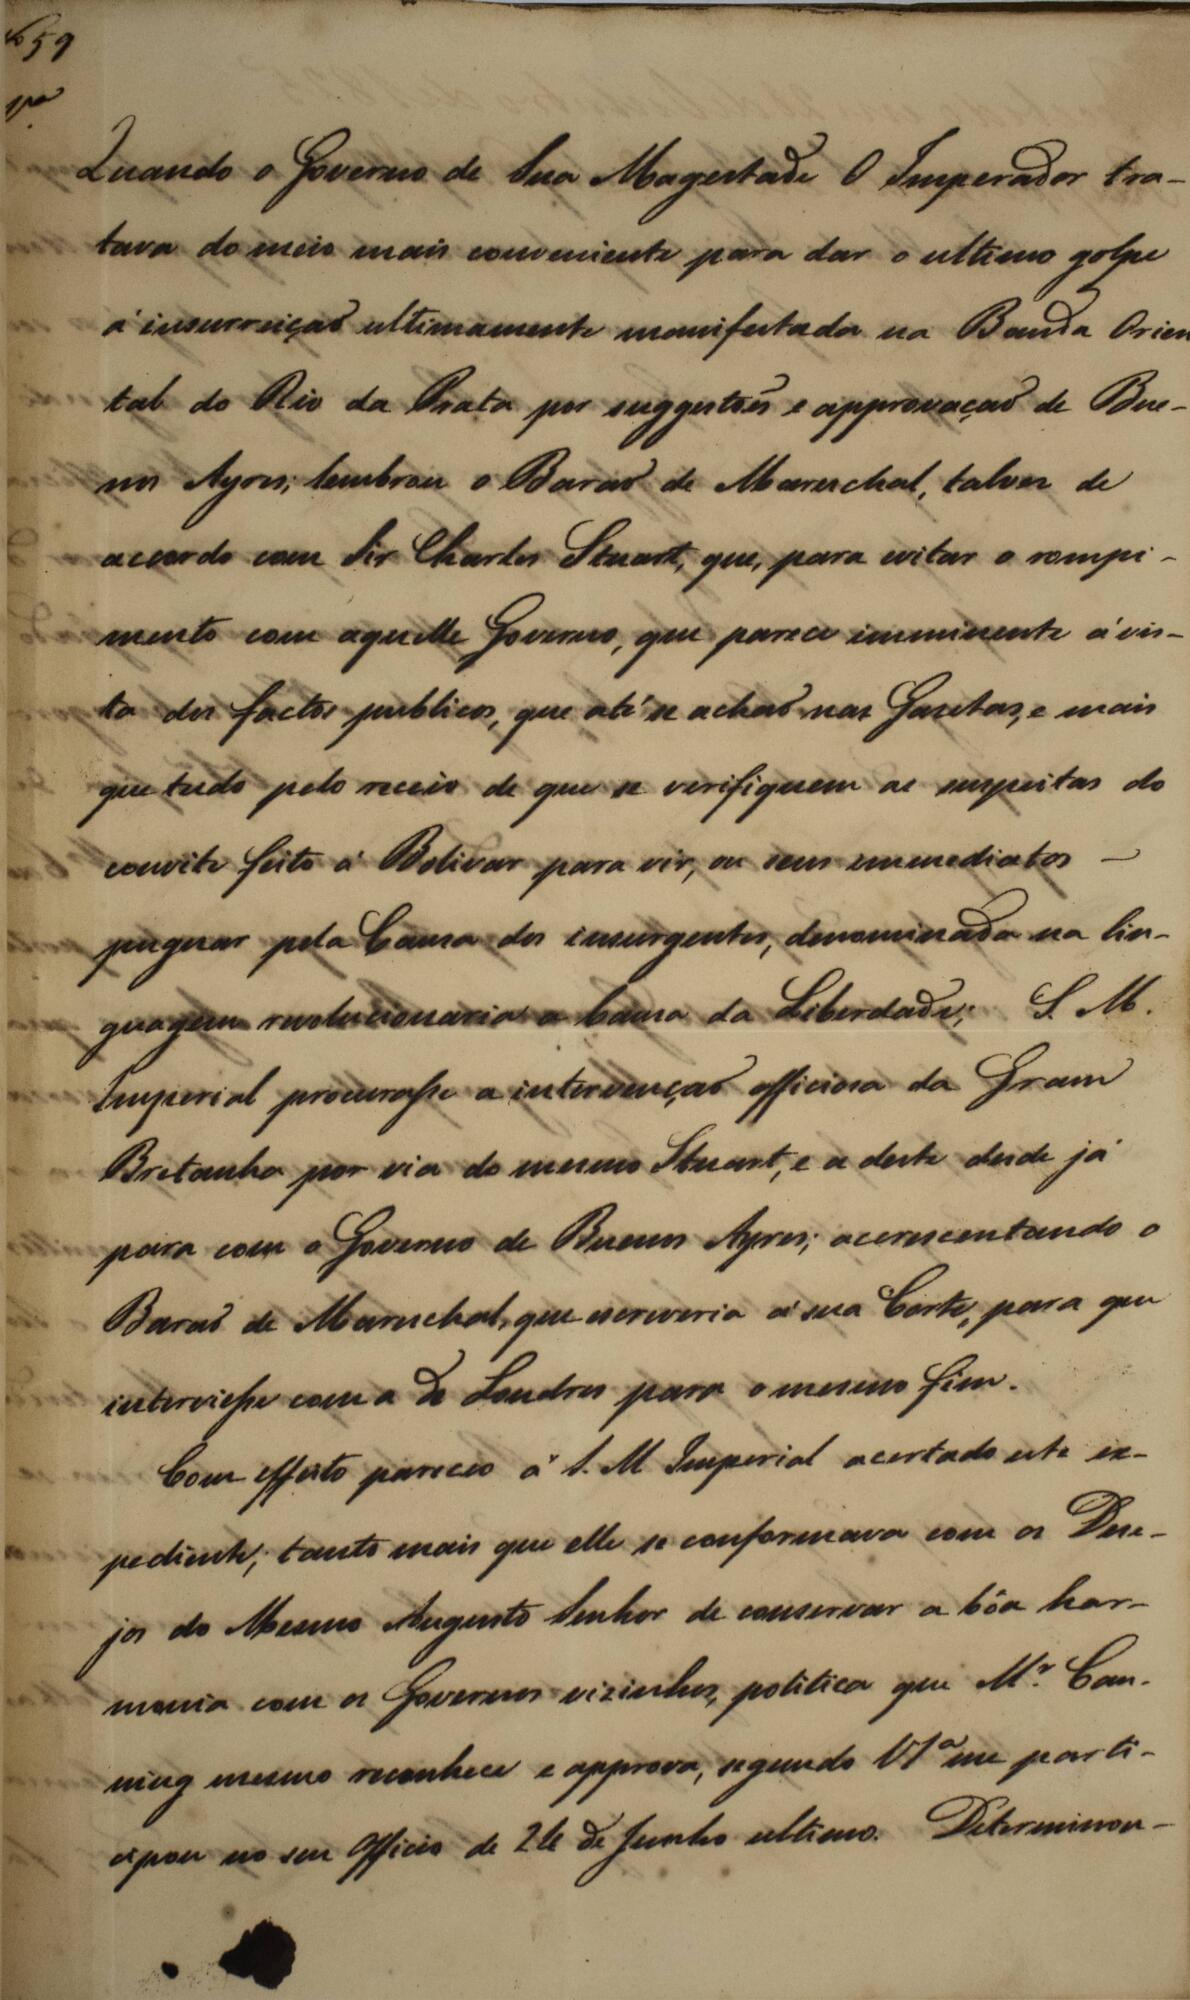 Nº 59
Quando o Governo de Sua Magestade O Imperador tra-
tava do meio mais conveniente para dar o ultimo golpe
á insurreiçaõ ultimamente manifestada na Banda Orien
tal do Rio da Prata por suggestões e approvaçaõ de Bue-
nos Ayres; lembrou o Baraõ de Mareschal, talvez de
accordo com Sir Charles Stuart, que, para evitar o rompi-
mento com aquelle Governo, que parece imminente á vis-
ta dos factos publicos, que até se achaõ nas Gazetas, e mais
que tudo pelo receio de que se verifiquem as suspeitas do
convite feito á Bolivar para vir, ou seus immediatos -
pugnar pela Causa dos insurgentes, denominada na lin-
guagem revolucionaria a Causa da Liberdade; S. M.
Imperial procurasse a intervençaõ officiosa da Gram
Bretanha por via do mesmo Stuart, e a deste desde já
para com o Governo de Buenos Ayres; accrescentando o
Baraõ de Mareschal, que escreveria á sua Corte, para que
interviesse com a de Londres para o mesmo fim.
Com effeito pareceo á S. M Imperial acertado este ex-
pediente; tanto mais que elle se conformava com os Dese-
jos do Mesmo Augusto Senhor de conservar a bôa har-
monia com os Governos vizinhos, politica que Mr. Can-
ning mesmo reconhece e approva, segundo VSª me parti-
cipou no seu Officio de de Junho ultimo. Determinou-